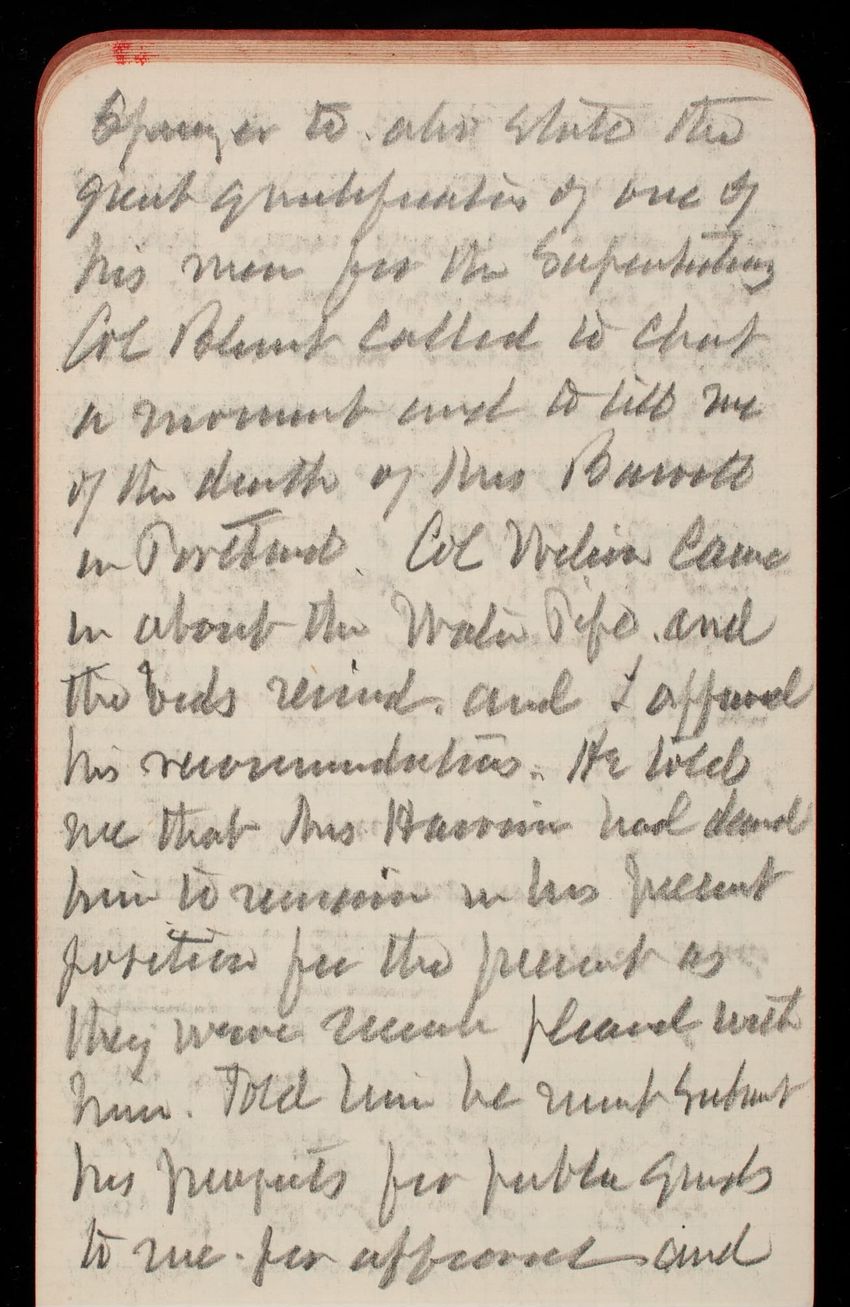 to also state the
great qualification of one of
his men for the
Col Blunt called to chat
a moment and to tell me
of the death of Mrs
in Portland. Col Wilson came
in about the Water Pipe. and
the bids received. and I approved
his recommendations. He told
me that Mrs Harrison had desired
him to remain in his present
position for the present as
they were so much pleased with
him. Told him he must submit
his projects for public grounds
to me for approval and